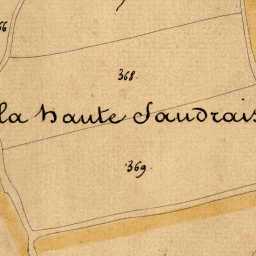 66
368
la haute Saudrais
369